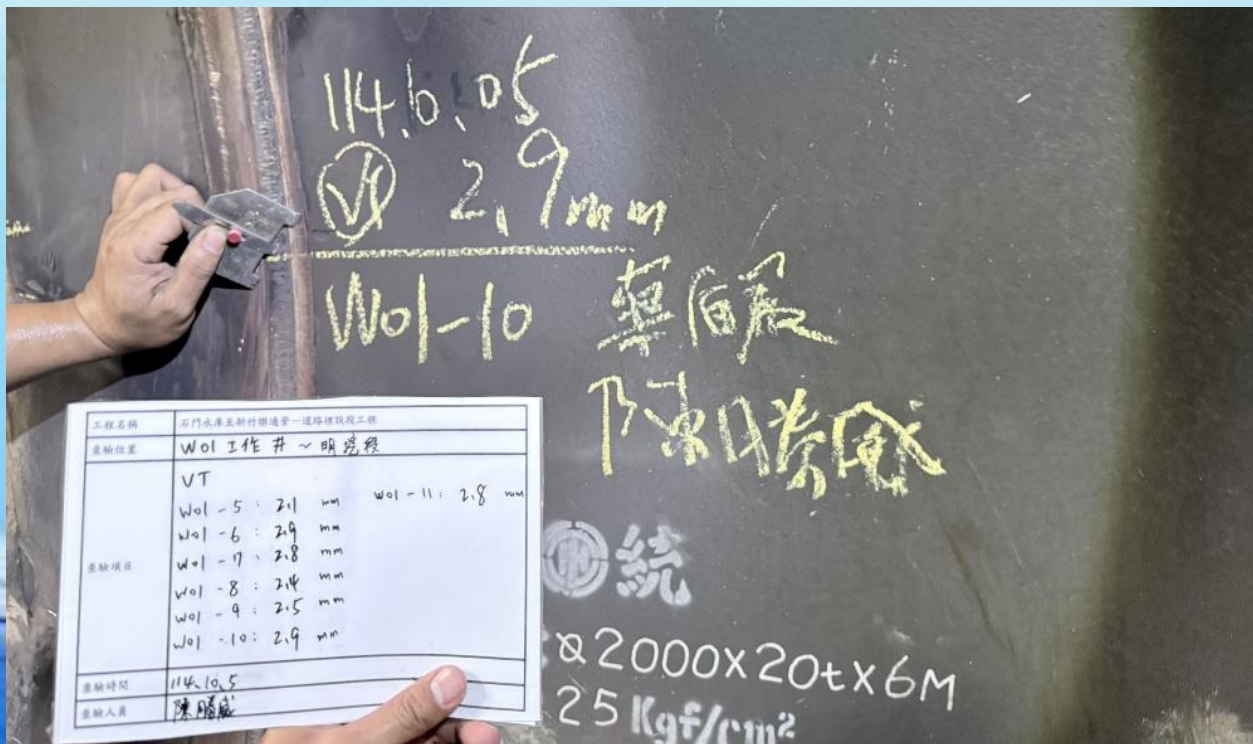 114.6.05
VT 2.9mm
W01-10
陳勝威
工程名稱 石門水庫至新竹聯通管－道路埋設段工程
查驗位置 W01工作井～明挖段
查驗項目
VT
W01-5: 2.1 mm W01-11: 2.8 mm
W01-6: 2.9 mm
W01-7: 2.8 mm
W01-8: 2.4 mm
W01-9: 2.5 mm
W01-10: 2.9 mm
查驗時間 114.10.5
查驗人員 陳勝威
統
2000X20tX6M
25 Kgf/cm²